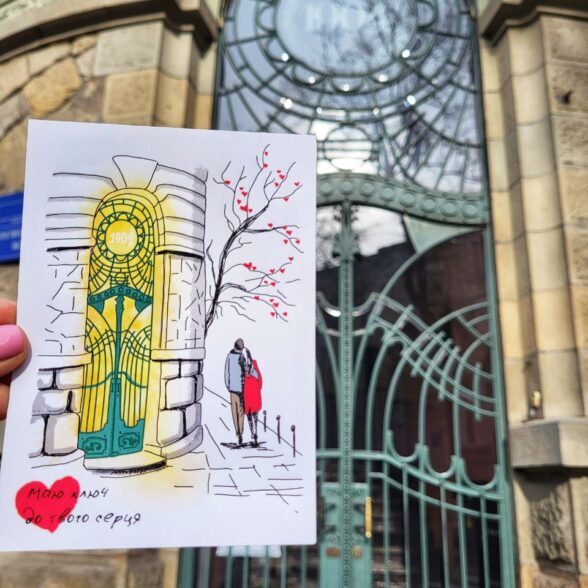 1904
1904
Маю ключ
до твого серця